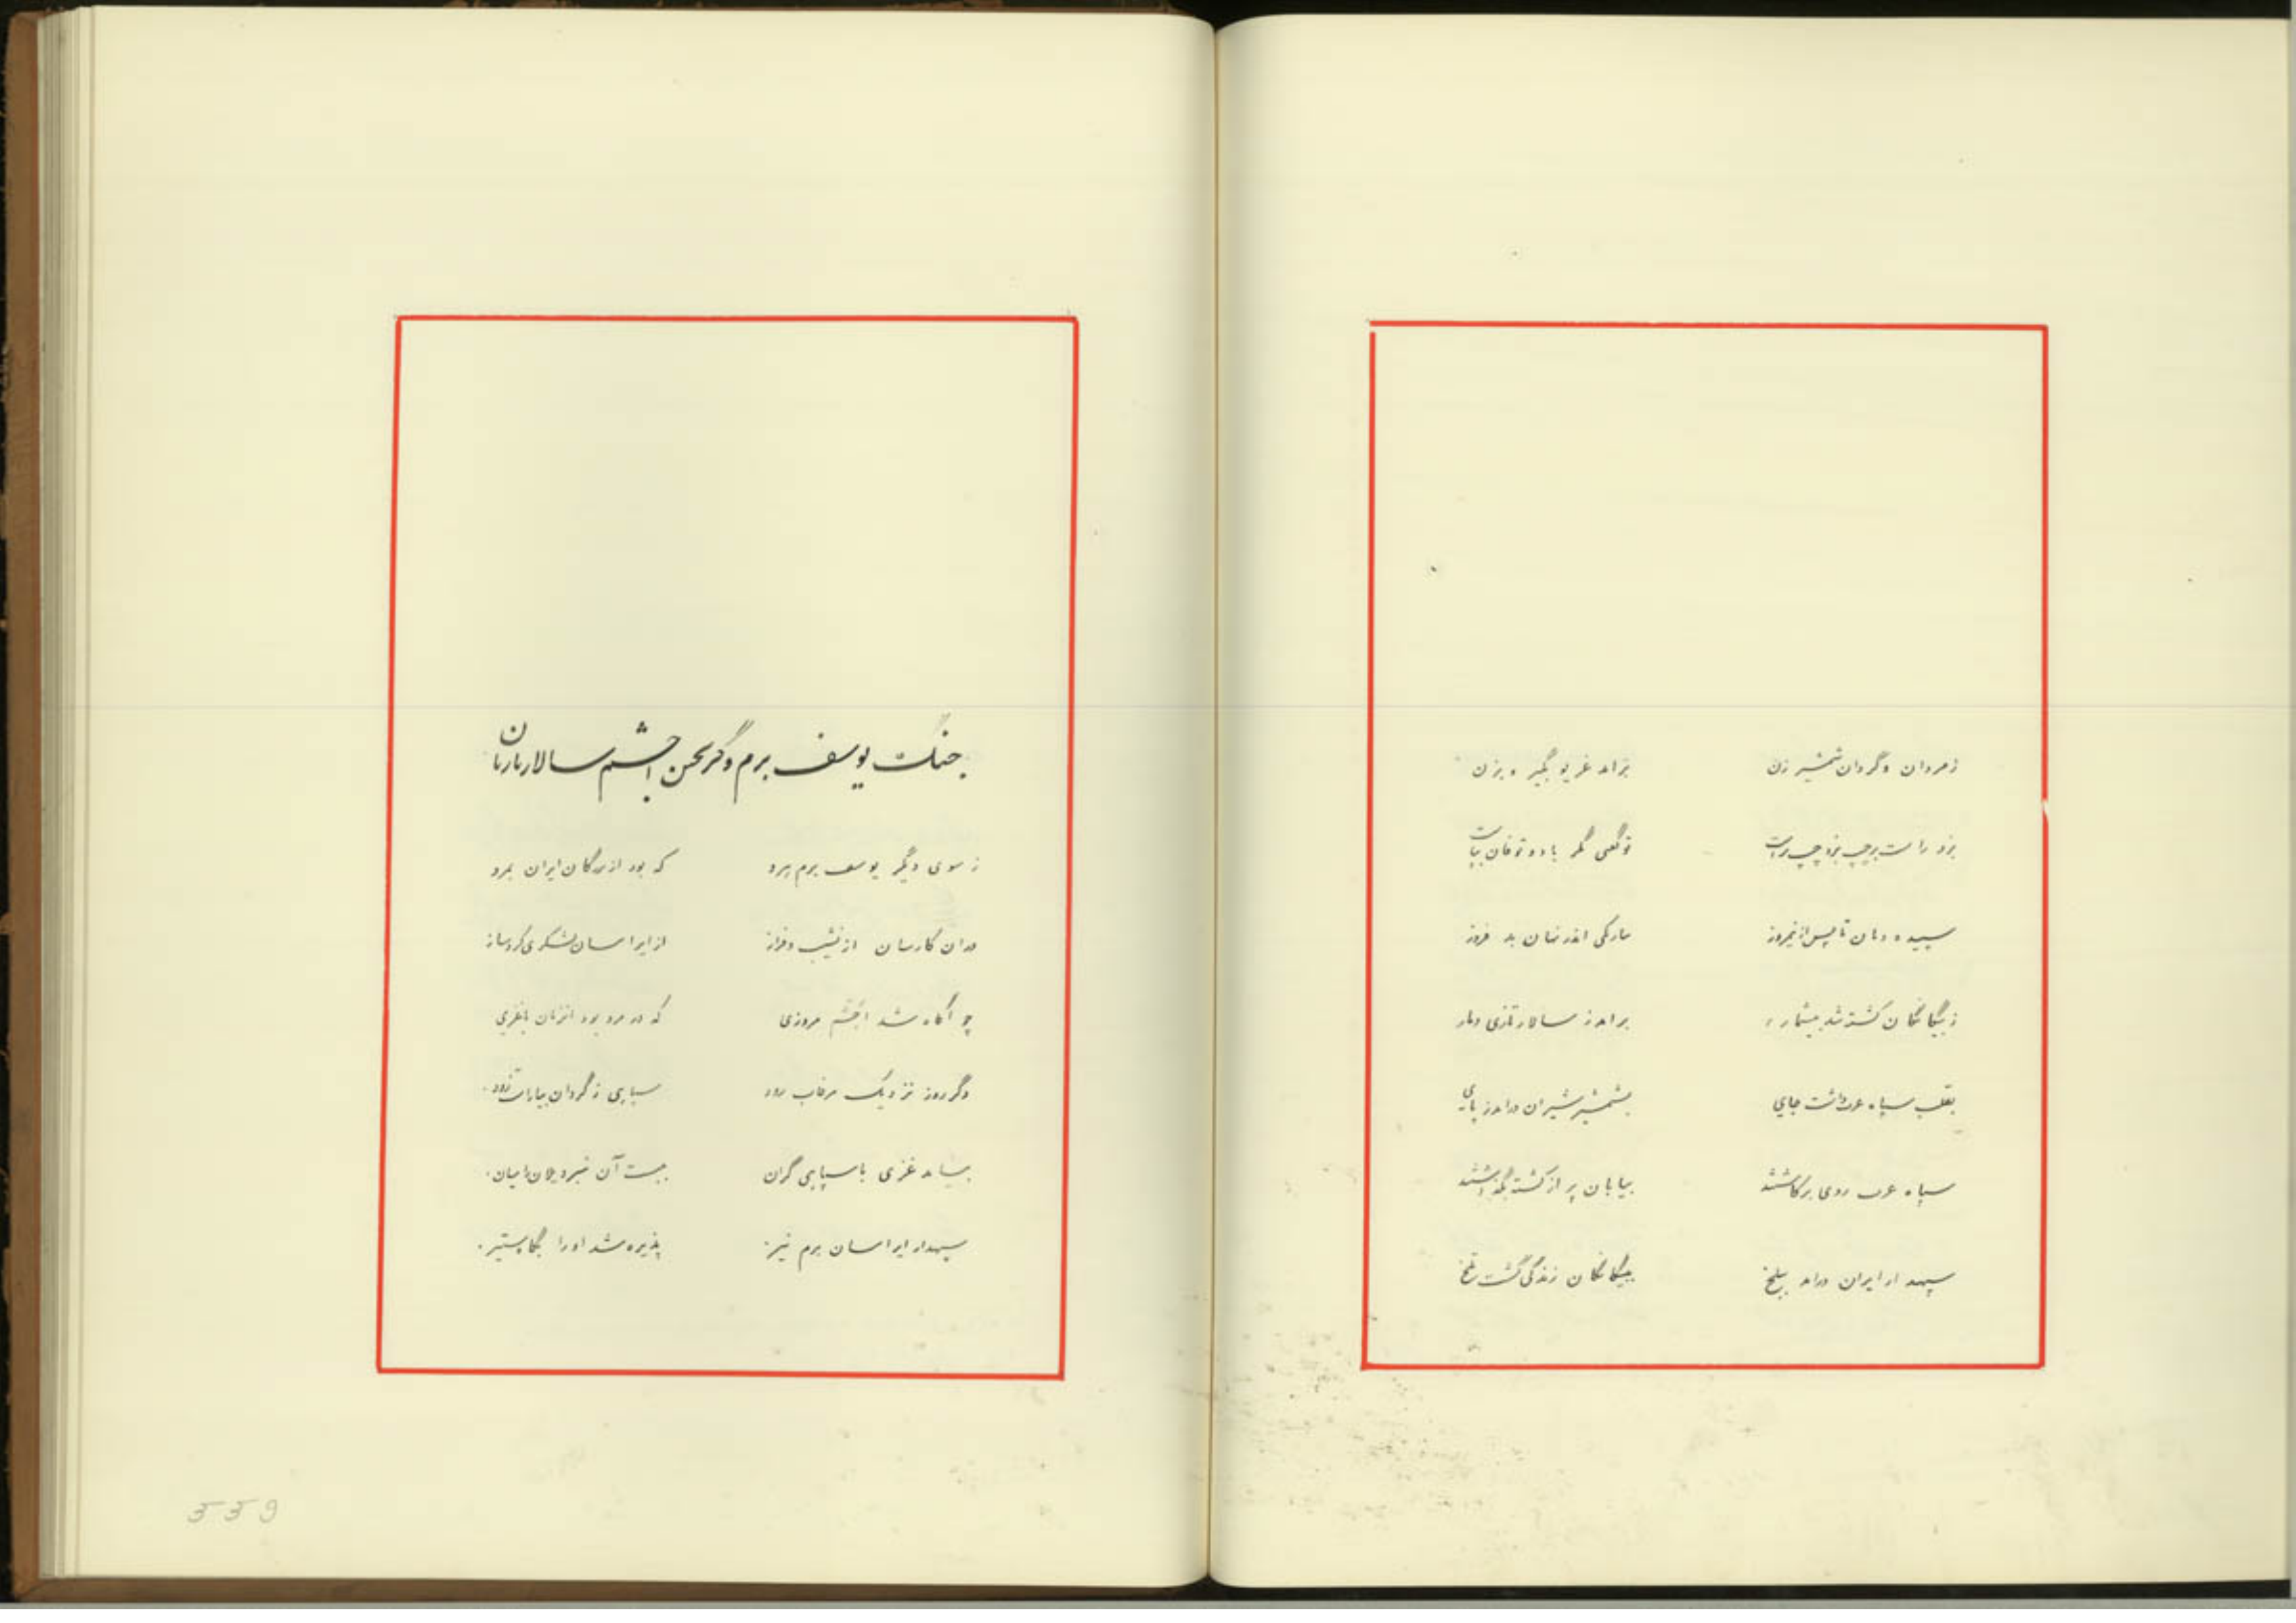 زمردان و گردان شمشیر زن برامد غریو بگیر و بزن
بزد راست بر چپ بزد چپ براست تو گفتی مگر باد و توفان بپاست
سپیده دمان تا پس از نیمروز
ز بیگانگان کشته شد بیشمار برامد ز سالار تازی دمار
بقلب سپاه عرب داشت جای بشمشیر شیران درامد ز پای
سپاه عرب روی برگاشتند بیابان پر از کشته بگذاشتند
سپهدار ایران درامد ببلخ ببیگانگان زندگی گشت تلخ
جنگ یوسف برم و گریختن اخشم سالار تازیان
ز سوی دیگر یوسف برم برد که بود از بزرگان ایران بمرو
دران کارسان از نشیب و فراز از ایراسان لشکری کرد ساز
چو آگاه شد اخشم مروزی که در مرو بود انزمان
دگر روز نزدیک مرغاب رود سپاهی ز گردان بیاراست زود
بیامد غزی با سپاهی گران ببست آن نبرد یلان را میان
سپهدار ایراسان برم نیز پذیره شد او را بگاه ستیز
559